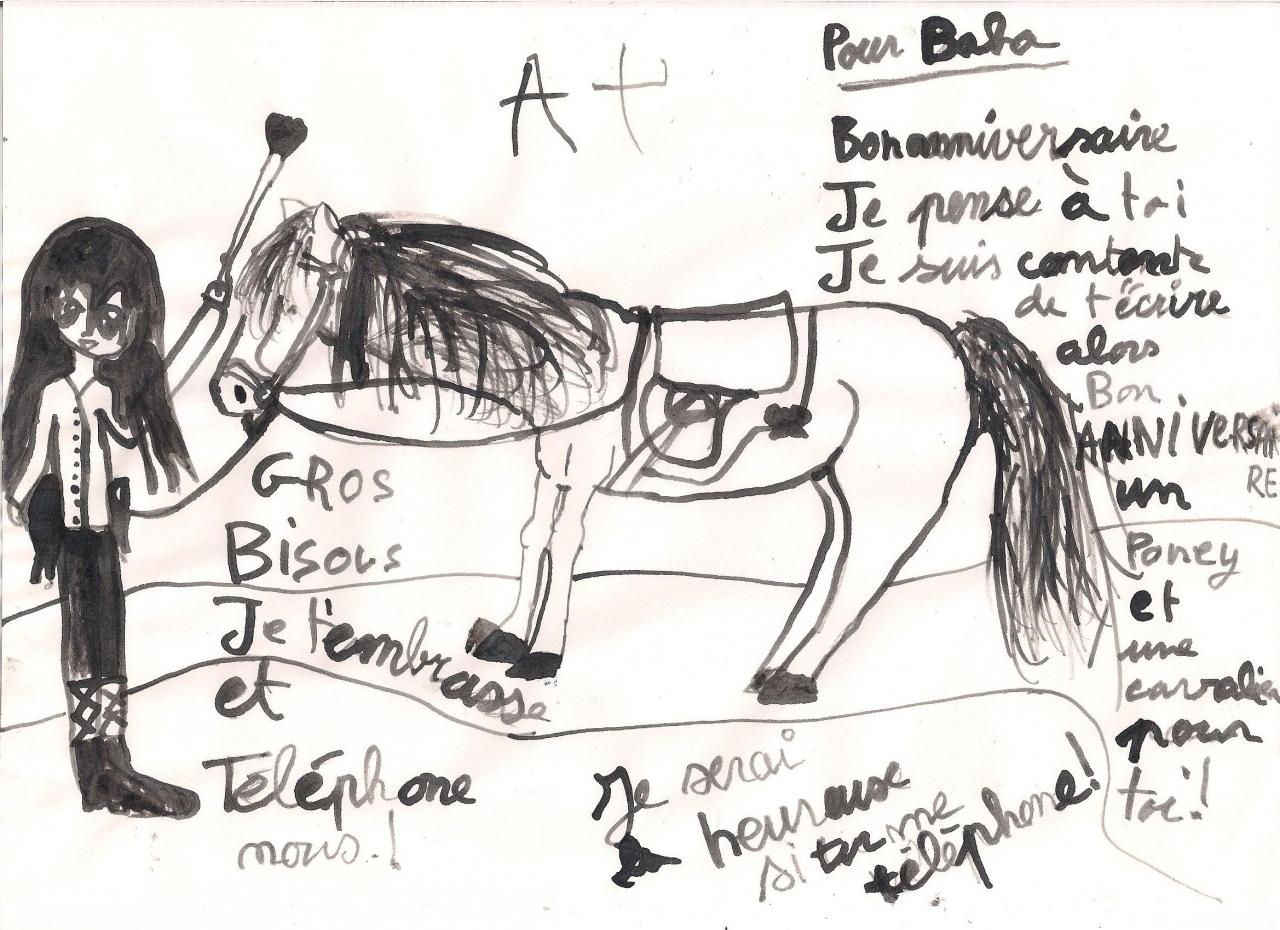 A+
Pour Baba
Bon anniversaire
Je pense à toi
Je suis contente
de t'écrire
alors
Bon
ANNIVERSAI
RE
un
Poney
et
une
cavalière
pour
toi!
GROS
Bisous
Je t'embrasse
et
Téléphone
nous.!
Je serai
heureuse
si tu me
téléphone!